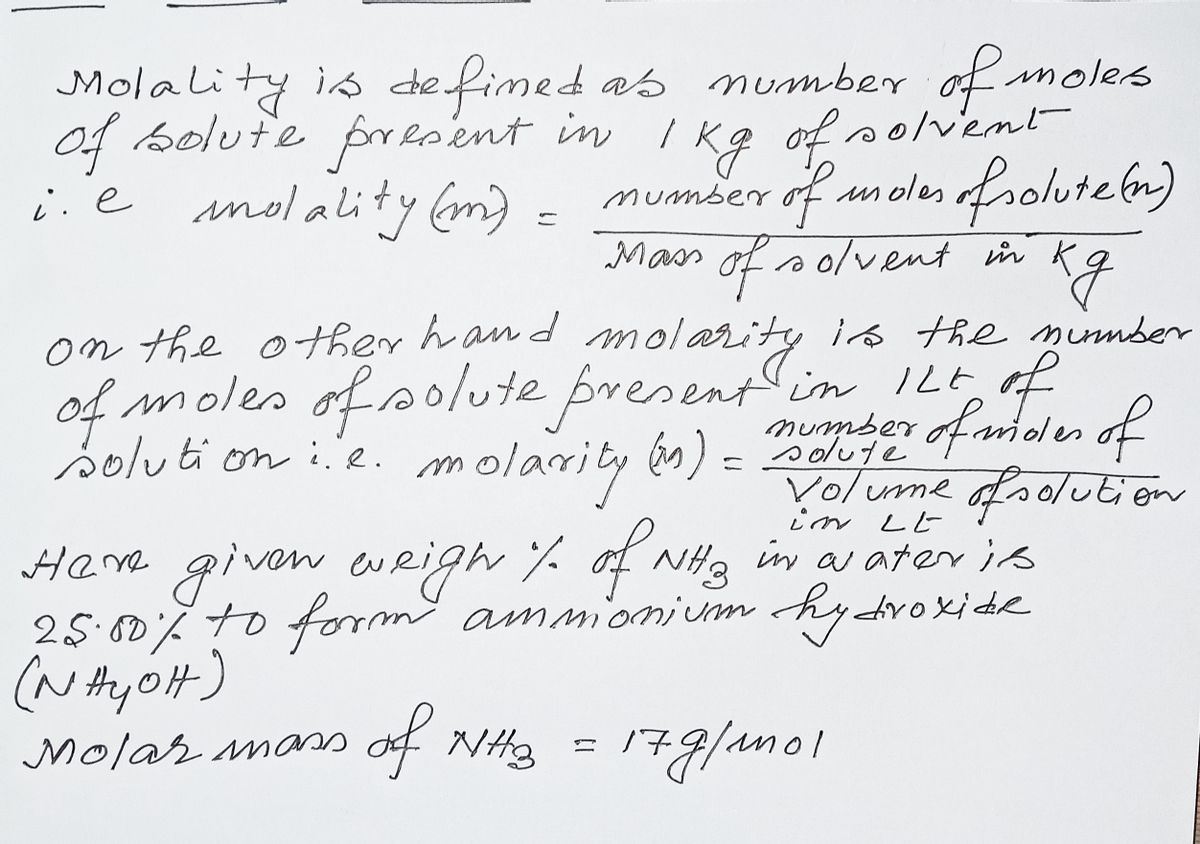 Molality is defined as number of moles
of solute present in 1 Kg of solvent
i.e molality (m) = number of moles of solute (n)
Mass of solvent in Kg
on the other hand molarity is the number
of moles of solute present in 1Lt of
solution i.e. molarity (m) = number of moles of solute
Volume of solution in Lt
Here given weigh % of NH3 in water is
25.00% to form ammonium hydroxide
(NH4OH)
Molar mass of NH3 = 17g/mol